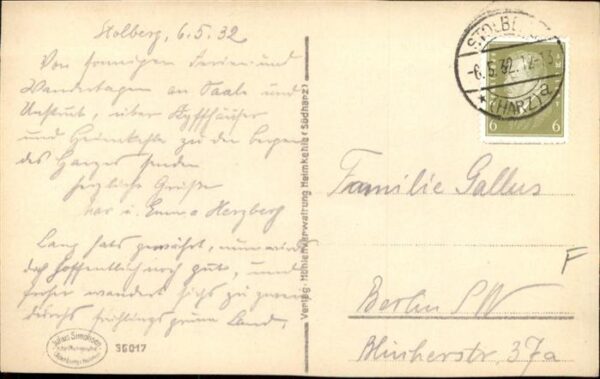 Stolberg, 6.5.32
Von sonnigen Ferien und
Wandertagen an Saale und
Unstrut, über Kyffhäuser
und Heimkehle zu den Bergen
des Harzes senden
herzliche Grüße
u. Emma Herzberg
Lang hats gewährt, nun wirds
doch hoffentlich noch gut, und
froher wandert sichs zu zweien
durchs frühlingsgrüne Land.
Julius Simonsen
36017
Verlag: Höhlenverwaltung Heimkehle (Südharz)
STOLBE
-6.5.32.12-13
(HARZ) a
6 6
Familie Gallus
F
Berlin SW
Blücherstr. 37a